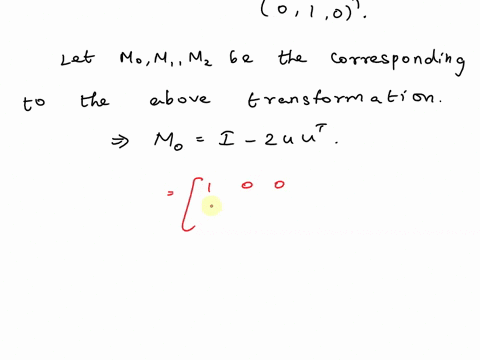 (0, 1, 0)ᵀ.
Let M₀, M₁, M₂ be the corresponding
to the above transformation.
⇒ M₀ = I − 2uuᵀ.
= [ 1 0 0